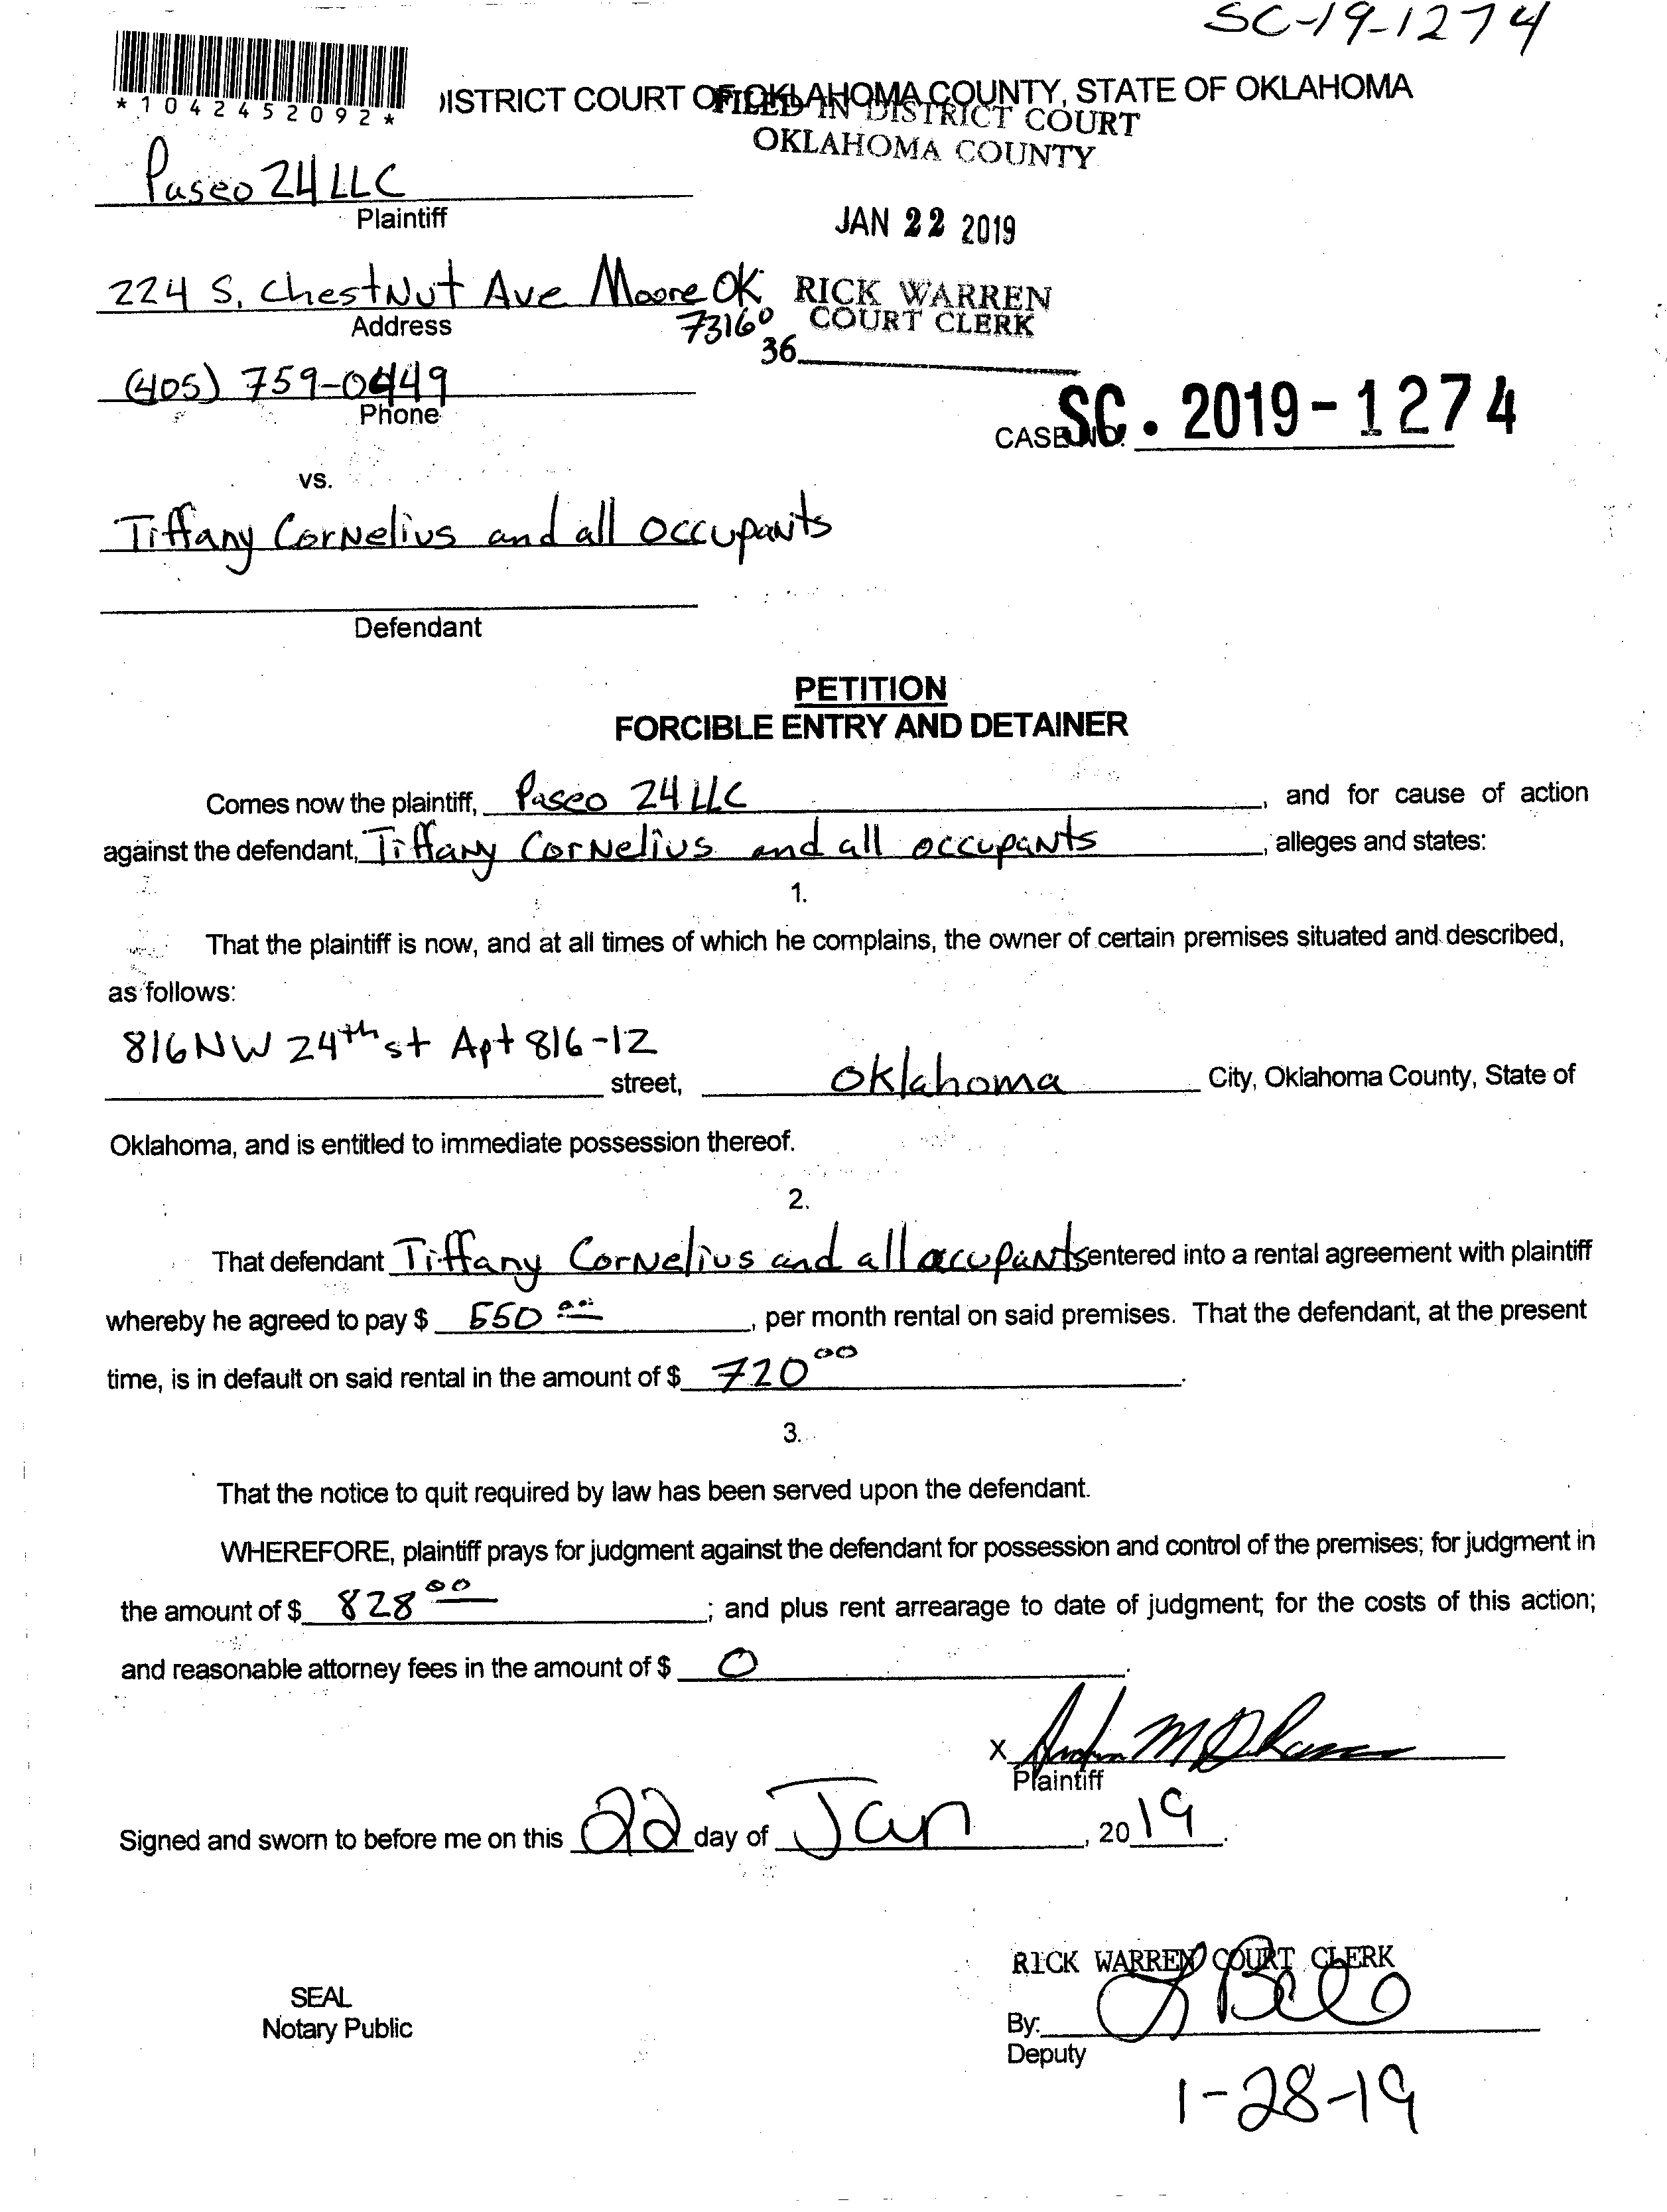 SC-19-1274
*1042452092*
DISTRICT COURT OF OKLAHOMA COUNTY, STATE OF OKLAHOMA
FILED IN DISTRICT COURT
OKLAHOMA COUNTY
Paseo 24 LLC
Plaintiff
JAN 22 2019
224 S. Chestnut Ave Moore OK
73160
Address
RICK WARREN
COURT CLERK
36
(405) 759-0449
Phone
CASE NO. SC. 2019-1274
vs.
Tiffany Cornelius and all occupants
Defendant
PETITION
FORCIBLE ENTRY AND DETAINER
Comes now the plaintiff, Paseo 24 LLC, and for cause of action
against the defendant, Tiffany Cornelius and all occupants, alleges and states:
1.
That the plaintiff is now, and at all times of which he complains, the owner of certain premises situated and described,
as follows:
816 NW 24th st Apt 816-12
street, Oklahoma City, Oklahoma County, State of
Oklahoma, and is entitled to immediate possession thereof.
2.
That defendant Tiffany Cornelius and all occupants entered into a rental agreement with plaintiff
whereby he agreed to pay $ 550.00, per month rental on said premises. That the defendant, at the present
time, is in default on said rental in the amount of $ 720 00.
3.
That the notice to quit required by law has been served upon the defendant.
WHEREFORE, plaintiff prays for judgment against the defendant for possession and control of the premises; for judgment in
the amount of $ 828 00; and plus rent arrearage to date of judgment; for the costs of this action;
and reasonable attorney fees in the amount of $ 0.
X
Plaintiff
Signed and sworn to before me on this 22 day of Jan, 2019.
RICK WARREN COURT CLERK
SEAL
Notary Public
By:
Deputy
1-28-19